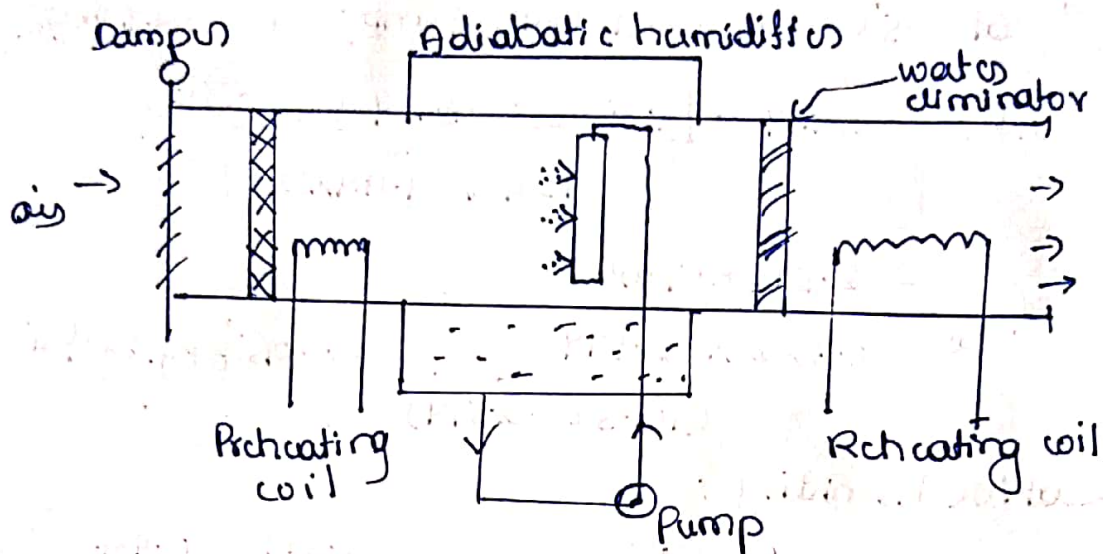 Damper
Adiabatic humidifier
water
eliminator
air
Preheating
coil
Reheating coil
Pump